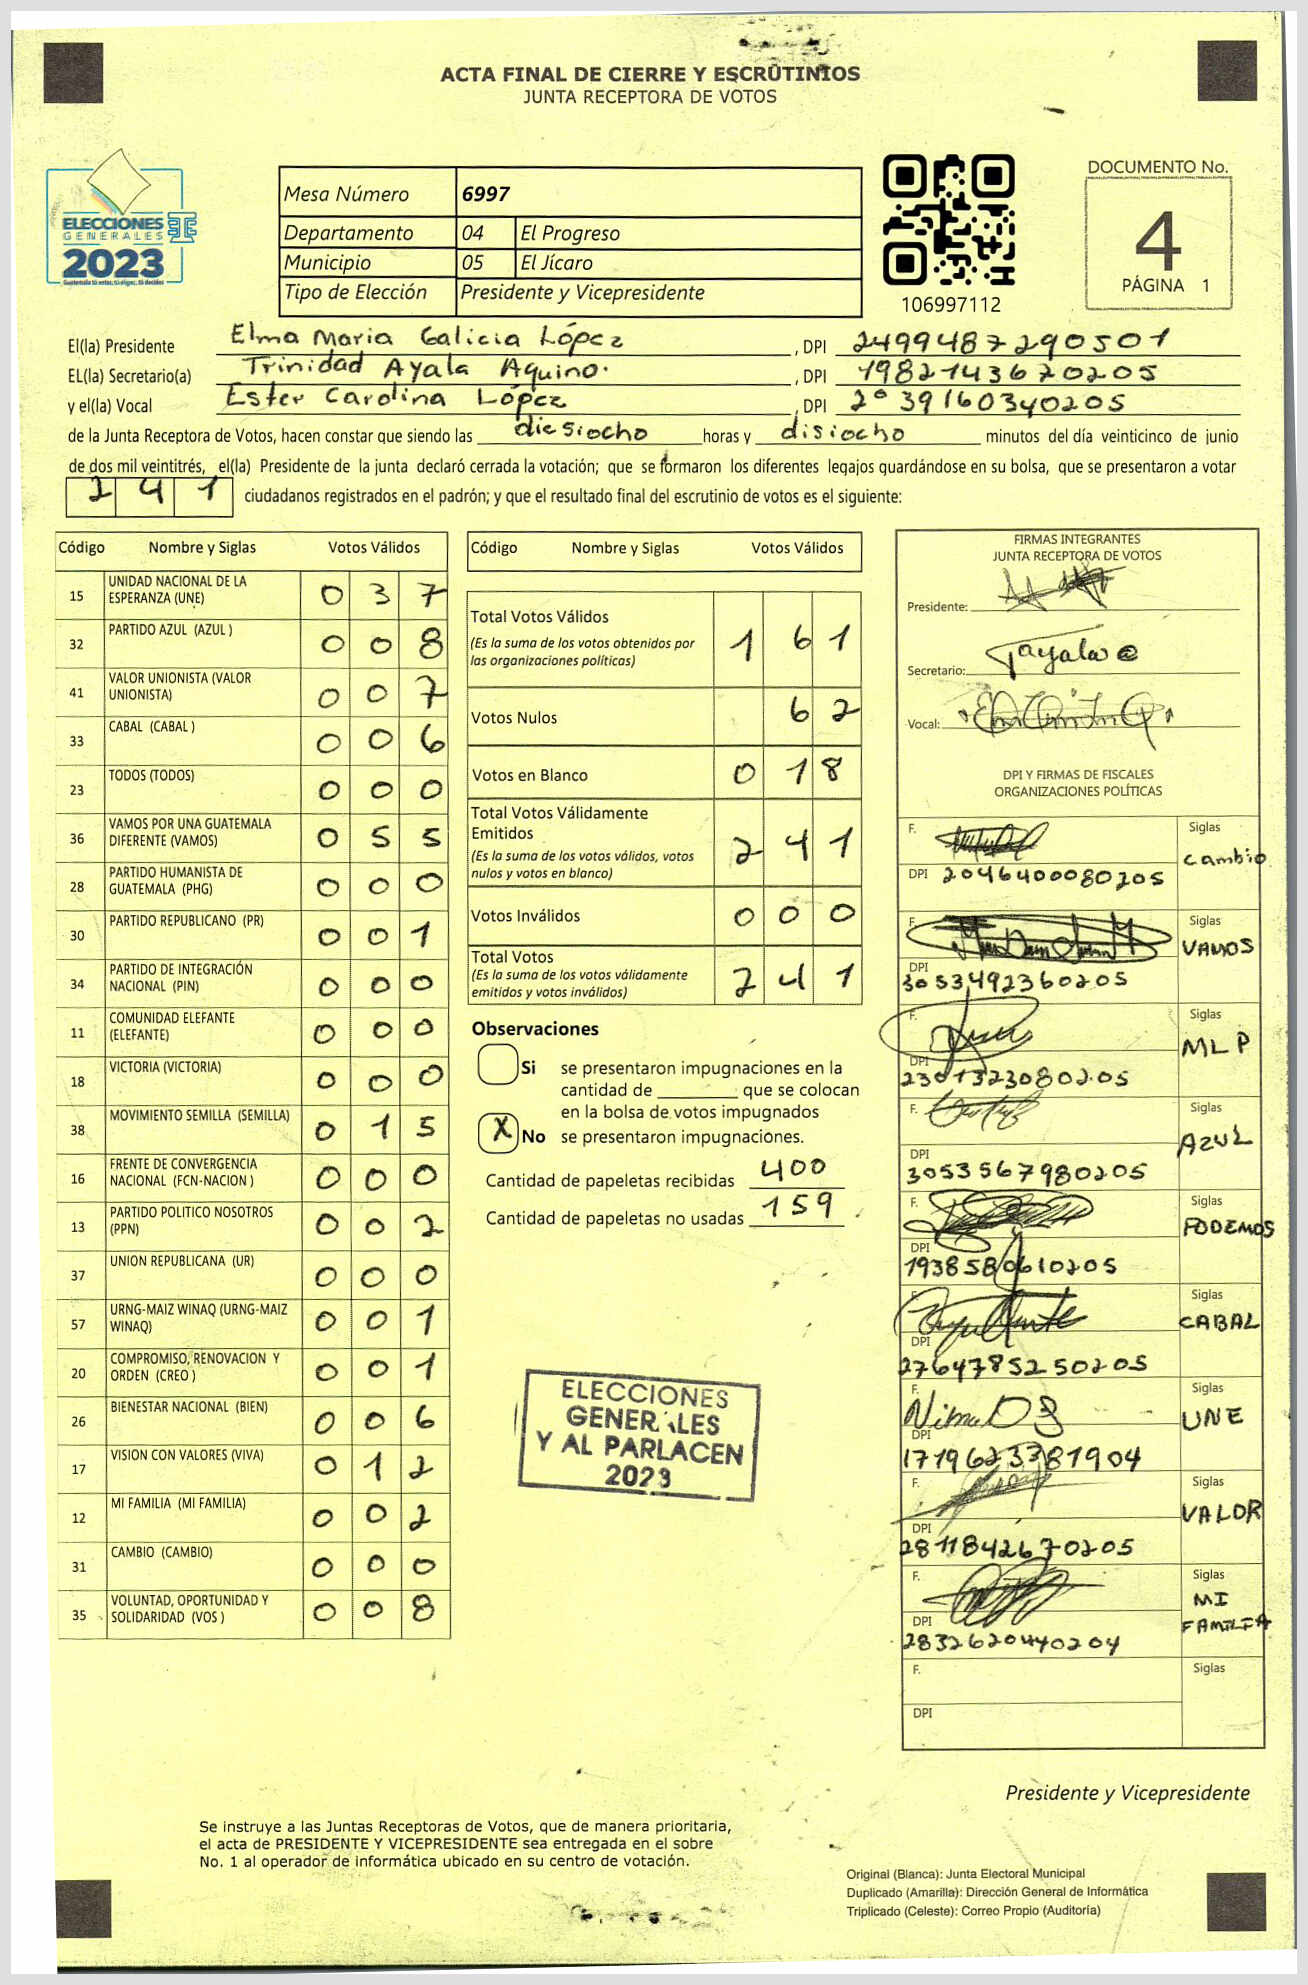 ACTA FINAL DE CIERRE Y ESCRUTINIOS
JUNTA RECEPTORA DE VOTOS
ELECCIONES
GENERALES
2023
Mesa Número 6997
Departamento 04 El Progreso
Municipio 05 El Jícaro
Tipo de Elección Presidente y Vicepresidente
106997112
DOCUMENTO No.
4
PÁGINA 1
El(la) Presidente Elma Maria Galicia López , DPI 2499487290501
EL(la) Secretario(a) Trinidad Ayala Aquino. , DPI 1982143620205
y el(la) Vocal Ester Carolina López , DPI 2039160340205
de la Junta Receptora de Votos, hacen constar que siendo las diesiocho horas y disiocho minutos del día veinticinco de junio
de dos mil veintitrés, el(la) Presidente de la junta declaró cerrada la votación; que se formaron los diferentes legajos guardándose en su bolsa, que se presentaron a votar
2 4 1 ciudadanos registrados en el padrón; y que el resultado final del escrutinio de votos es el siguiente:
Código Nombre y Siglas Votos Válidos
15 UNIDAD NACIONAL DE LA ESPERANZA (UNE) 0 3 7
32 PARTIDO AZUL (AZUL ) 0 0 8
41 VALOR UNIONISTA (VALOR UNIONISTA) 0 0 7
33 CABAL (CABAL ) 0 0 6
23 TODOS (TODOS) 0 0 0
36 VAMOS POR UNA GUATEMALA DIFERENTE (VAMOS) 0 5 5
28 PARTIDO HUMANISTA DE GUATEMALA (PHG) 0 0 0
30 PARTIDO REPUBLICANO (PR) 0 0 1
34 PARTIDO DE INTEGRACIÓN NACIONAL (PIN) 0 0 0
11 COMUNIDAD ELEFANTE (ELEFANTE) 0 0 0
18 VICTORIA (VICTORIA) 0 0 0
38 MOVIMIENTO SEMILLA (SEMILLA) 0 1 5
16 FRENTE DE CONVERGENCIA NACIONAL (FCN-NACION ) 0 0 0
13 PARTIDO POLITICO NOSOTROS (PPN) 0 0 2
37 UNION REPUBLICANA (UR) 0 0 0
57 URNG-MAIZ WINAQ (URNG-MAIZ WINAQ) 0 0 1
20 COMPROMISO, RENOVACION Y ORDEN (CREO ) 0 0 1
26 BIENESTAR NACIONAL (BIEN) 0 0 6
17 VISION CON VALORES (VIVA) 0 1 2
12 MI FAMILIA (MI FAMILIA) 0 0 2
31 CAMBIO (CAMBIO) 0 0 0
35 VOLUNTAD, OPORTUNIDAD Y SOLIDARIDAD (VOS ) 0 0 8
Código Nombre y Siglas Votos Válidos
Total Votos Válidos 1 6 1
(Es la suma de los votos obtenidos por
las organizaciones políticas)
Votos Nulos 6 2
Votos en Blanco 0 1 8
Total Votos Válidamente
Emitidos 2 4 1
(Es la suma de los votos válidos, votos
nulos y votos en blanco)
Votos Inválidos 0 0 0
Total Votos 2 4 1
(Es la suma de los votos válidamente
emitidos y votos inválidos)
Observaciones
Si se presentaron impugnaciones en la
cantidad de ________ que se colocan
en la bolsa de votos impugnados
X No se presentaron impugnaciones.
Cantidad de papeletas recibidas 400
Cantidad de papeletas no usadas 159
ELECCIONES
GENERALES
Y AL PARLACEN
2023
FIRMAS INTEGRANTES
JUNTA RECEPTORA DE VOTOS
Presidente:
Secretario:
Vocal:
DPI Y FIRMAS DE FISCALES
ORGANIZACIONES POLÍTICAS
F. Siglas
cambio
DPI 2046400080205
F. Siglas
VAMOS
DPI
3053492360205
F. Siglas
MLP
DPI
2301323080205
F. Siglas
AZUL
DPI
3053567980205
F. Siglas
PODEMOS
DPI
1938580610205
F. Siglas
CABAL
DPI
2764785250205
F. Siglas
UNE
DPI
1719623381904
F. Siglas
VALOR
DPI
2811842670205
F. Siglas
MI
FAMILIA
DPI
2832620440204
F. Siglas
DPI
Presidente y Vicepresidente
Se instruye a las Juntas Receptoras de Votos, que de manera prioritaria,
el acta de PRESIDENTE Y VICEPRESIDENTE sea entregada en el sobre
No. 1 al operador de informática ubicado en su centro de votación.
Original (Blanca): Junta Electoral Municipal
Duplicado (Amarilla): Dirección General de Informática
Triplicado (Celeste): Correo Propio (Auditoría)